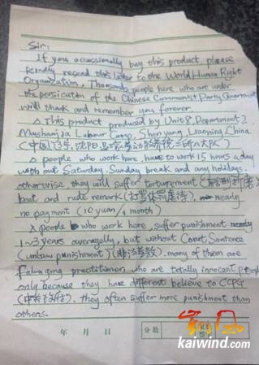 Sir:
If you occassionally buy this product, please
kindly resend this letter to the World Human Right
Organization. Thousands people here who are under
the persicution of the Chinese Communist Party Government
will thank and remember you forever.
This product produced by Unit 8, Department 2
Mashanjia Labour Camp, Shenyang, Liaoning, China
(中国,辽宁,沈阳马三家劳动教养院二所八大队)
people who work here, have to work 15 hours a day
with out Saturday, Sunday break and any holidays,
otherwise they will suffer torturement
beat and rude remark nearly
no payment (10 yuan/1 month)
people who work here, suffer punishment nearly
1~3 years averagely, but without Court Sentence
(unlaw punishment) many of them are
Falungong practitioner, who are totally innocent people
only because they have different believe to CCPG
they often suffer more punishment than
others.
年 月 日
kaiwind.com